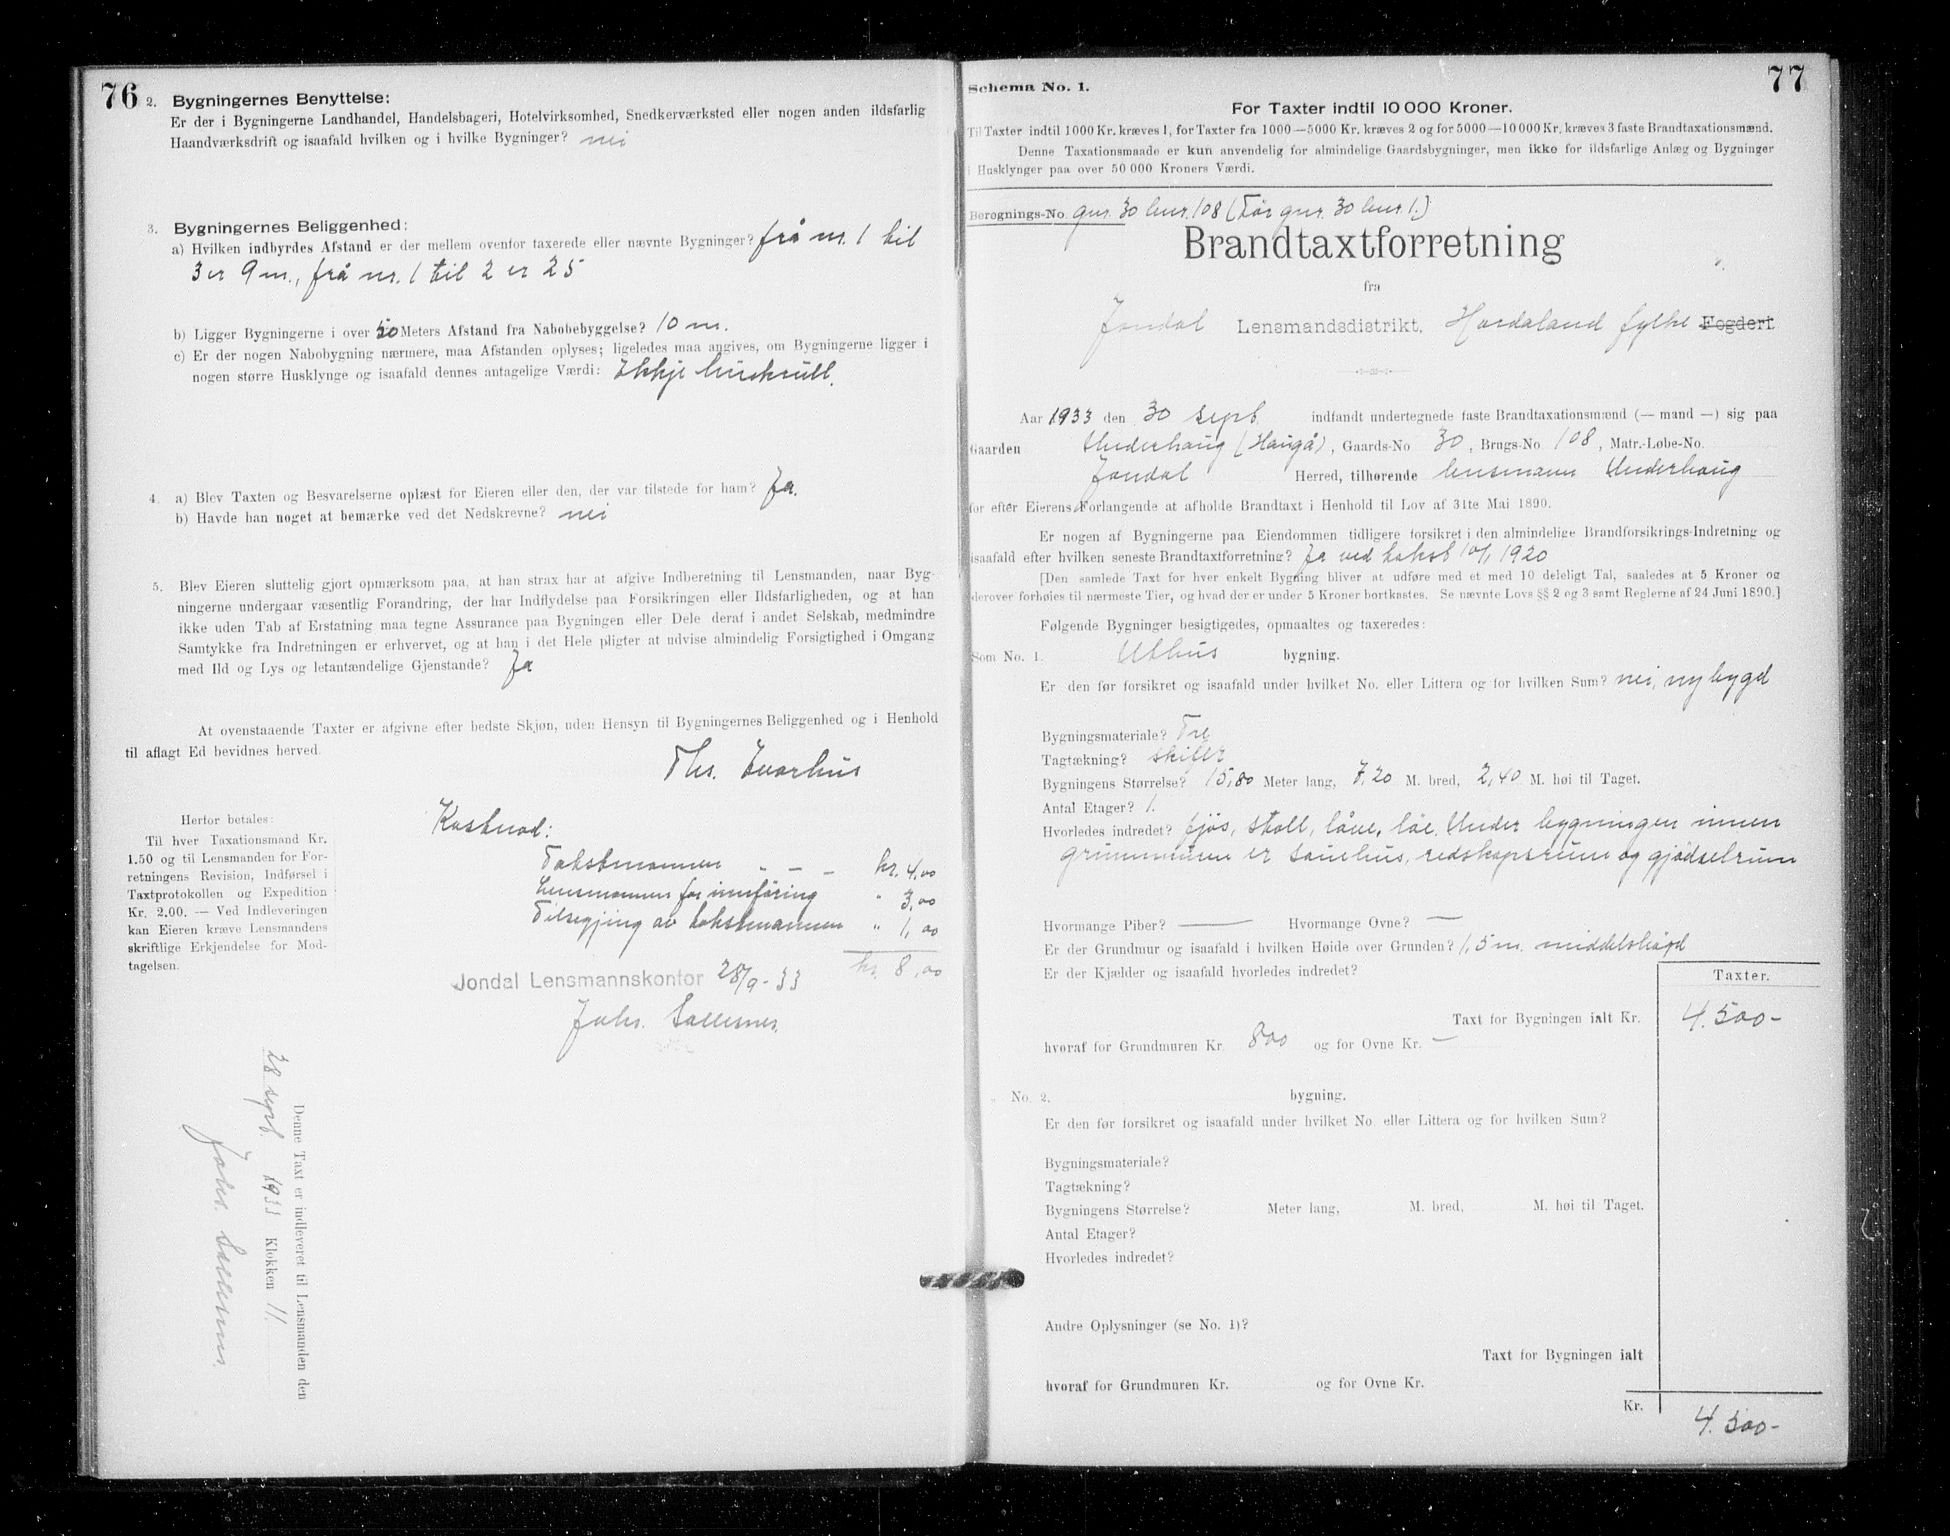 76
2. Bygningernes Benyttelse:
Er der i Bygningerne Landhandel, Handelsbageri, Hotelvirksomhed, Snedkerværksted eller nogen anden ildsfarlig
Haandværksdrift og isaafald hvilken og i hvilke Bygninger? nei
3. Bygningernes Beliggenhed:
a) Hvilken indbyrdes Afstand er der mellem ovenfor taxerede eller nævnte Bygninger? frå nr. 1 til
3 er 9 m., frå nr. 1 til 2 er 25
b) Ligger Bygningerne i over 50 Meters Afstand fra Nabobebyggelse? 10 m.
c) Er der nogen Nabobygning nærmere, maa Afstanden oplyses; ligeledes maa angives, om Bygningerne ligger i
nogen større Husklynge og isaafald dennes antagelige Værdi: Ikkje
4. a) Blev Taxten og Besvarelserne oplæst for Eieren eller den, der var tilstede for ham? Ja.
b) Havde han noget at bemærke ved det Nedskrevne? nei
5. Blev Eieren sluttelig gjort opmærksom paa, at han strax har at afgive Indberetning til Lensmanden, naar Byg-
ningerne undergaar væsentlig Forandring, der har Indflydelse paa Forsikringen eller Ildsfarligheden, og at han
ikke uden Tab af Erstatning maa tegne Assurance paa Bygningen eller Dele deraf i andet Selskab, medmindre
Samtykke fra Indretningen er erhvervet, og at han i det Hele pligter at udvise almindelig Forsigtighed i Omgang
med Ild og Lys og letantændelige Gjenstande? Ja
At ovenstaaende Taxter er afgivne efter bedste Skjøn, uden Hensyn til Bygningernes Beliggenhed og i Henhold
til aflagt Ed bevidnes herved.
Herfor betales:
Til hver Taxationsmand Kr.
1.50 og til Lensmanden for For-
retningens Revision, Indførsel i
Taxtprotokollen og Expedition
Kr. 2.00. — Ved Indleveringen
kan Eieren kræve Lensmandens
skriftlige Erkjendelse for Mod-
tagelsen.
Kostnad:
Takstmannen " — — kr. 4,00
Lensmannen for innføring " 3,00
Tilsegjing av takstmannen " 1,00
kr. 8,00
Jondal Lensmannskontor 28/9-33
Johs.
Denne Taxt er indleveret til Lensmanden den
28 sept. 1933 Klokken 11.
Johs.
77
Schema No. 1.
For Taxter indtil 10 000 Kroner.
Til Taxter indtil 1000 Kr. kræves 1, for Taxter fra 1000—5000 Kr. kræves 2 og for 5000—10000 Kr. kræves 3 faste Brandtaxationsmænd.
Denne Taxationsmaade er kun anvendelig for almindelige Gaardsbygninger, men ikke for ildsfarlige Anlæg og Bygninger
i Husklynger paa over 50 000 Kroners Værdi.
Berøgnings-No. gnr. 30 bnr. 108 (Før gnr. 30 bnr. 1.)
Brandtaxtforretning
fra
Jondal Lensmandsdistrikt, Hordaland fylke Fogderi.
Aar 1933 den 30 sept. indfandt undertegnede faste Brandtaxationsmænd (— mand —) sig paa
Gaarden Underhaug (Haugå), Gaards-No 30, Brugs-No 108, Matr.-Løbe-No.
Jondal Herred, tilhørende lensmann Underhaug
for efter Eierens Forlangende at afholde Brandtaxt i Henhold til Lov af 31te Mai 1890.
Er nogen af Bygningerne paa Eiendommen tidligere forsikret i den almindelige Brandforsikrings-Indretning og
isaafald efter hvilken seneste Brandtaxtforretning? Ja ved takst 10/1 1920
[Den samlede Taxt for hver enkelt Bygning bliver at udføre med et med 10 deleligt Tal, saaledes at 5 Kroner og
derover forhøies til nærmeste Tier, og hvad der er under 5 Kroner bortkastes. Se nævnte Lovs §§ 2 og 3 samt Reglerne af 24 Juni 1890.]
Følgende Bygninger besigtigedes, opmaaltes og taxeredes:
Som No. 1. Uthus bygning.
Er den før forsikret og isaafald under hvilket No. eller Littera og for hvilken Sum? nei, nybygd
Bygningsmateriale? Tre
Tagtækning? skifer
Bygningens Størrelse? 15,80 Meter lang, 7,20 M. bred, 2,40 M. høi til Taget.
Antal Etager? 1.
Hvorledes indredet? fjøs, stall, låve, løe. Under bygningen innen
grunnmuren er sauehus, redskapsrum og gjødselrum
Hvormange Piber? — Hvormange Ovne? —
Er der Grundmur og isaafald i hvilken Høide over Grunden? 1,5 m. middelshøgd
Er der Kjælder og isaafald hvorledes indredet?
Taxter.
Taxt for Bygningen ialt Kr. 4.500-
hvoraf for Grundmuren Kr. 800 og for Ovne Kr. —
" No. 2. bygning.
Er den før forsikret og isaafald under hvilket No. eller Littera og for hvilken Sum?
Bygningsmateriale?
Tagtækning?
Bygningens Størrelse? Meter lang, M. bred, M. høi til Taget.
Antal Etager?
Hvorledes indredet?
Andre Oplysninger (se No. 1)?
Taxt for Bygningen ialt
hvoraf for Grundmuren Kr. og for Ovne Kr.
Kr. 4.500-